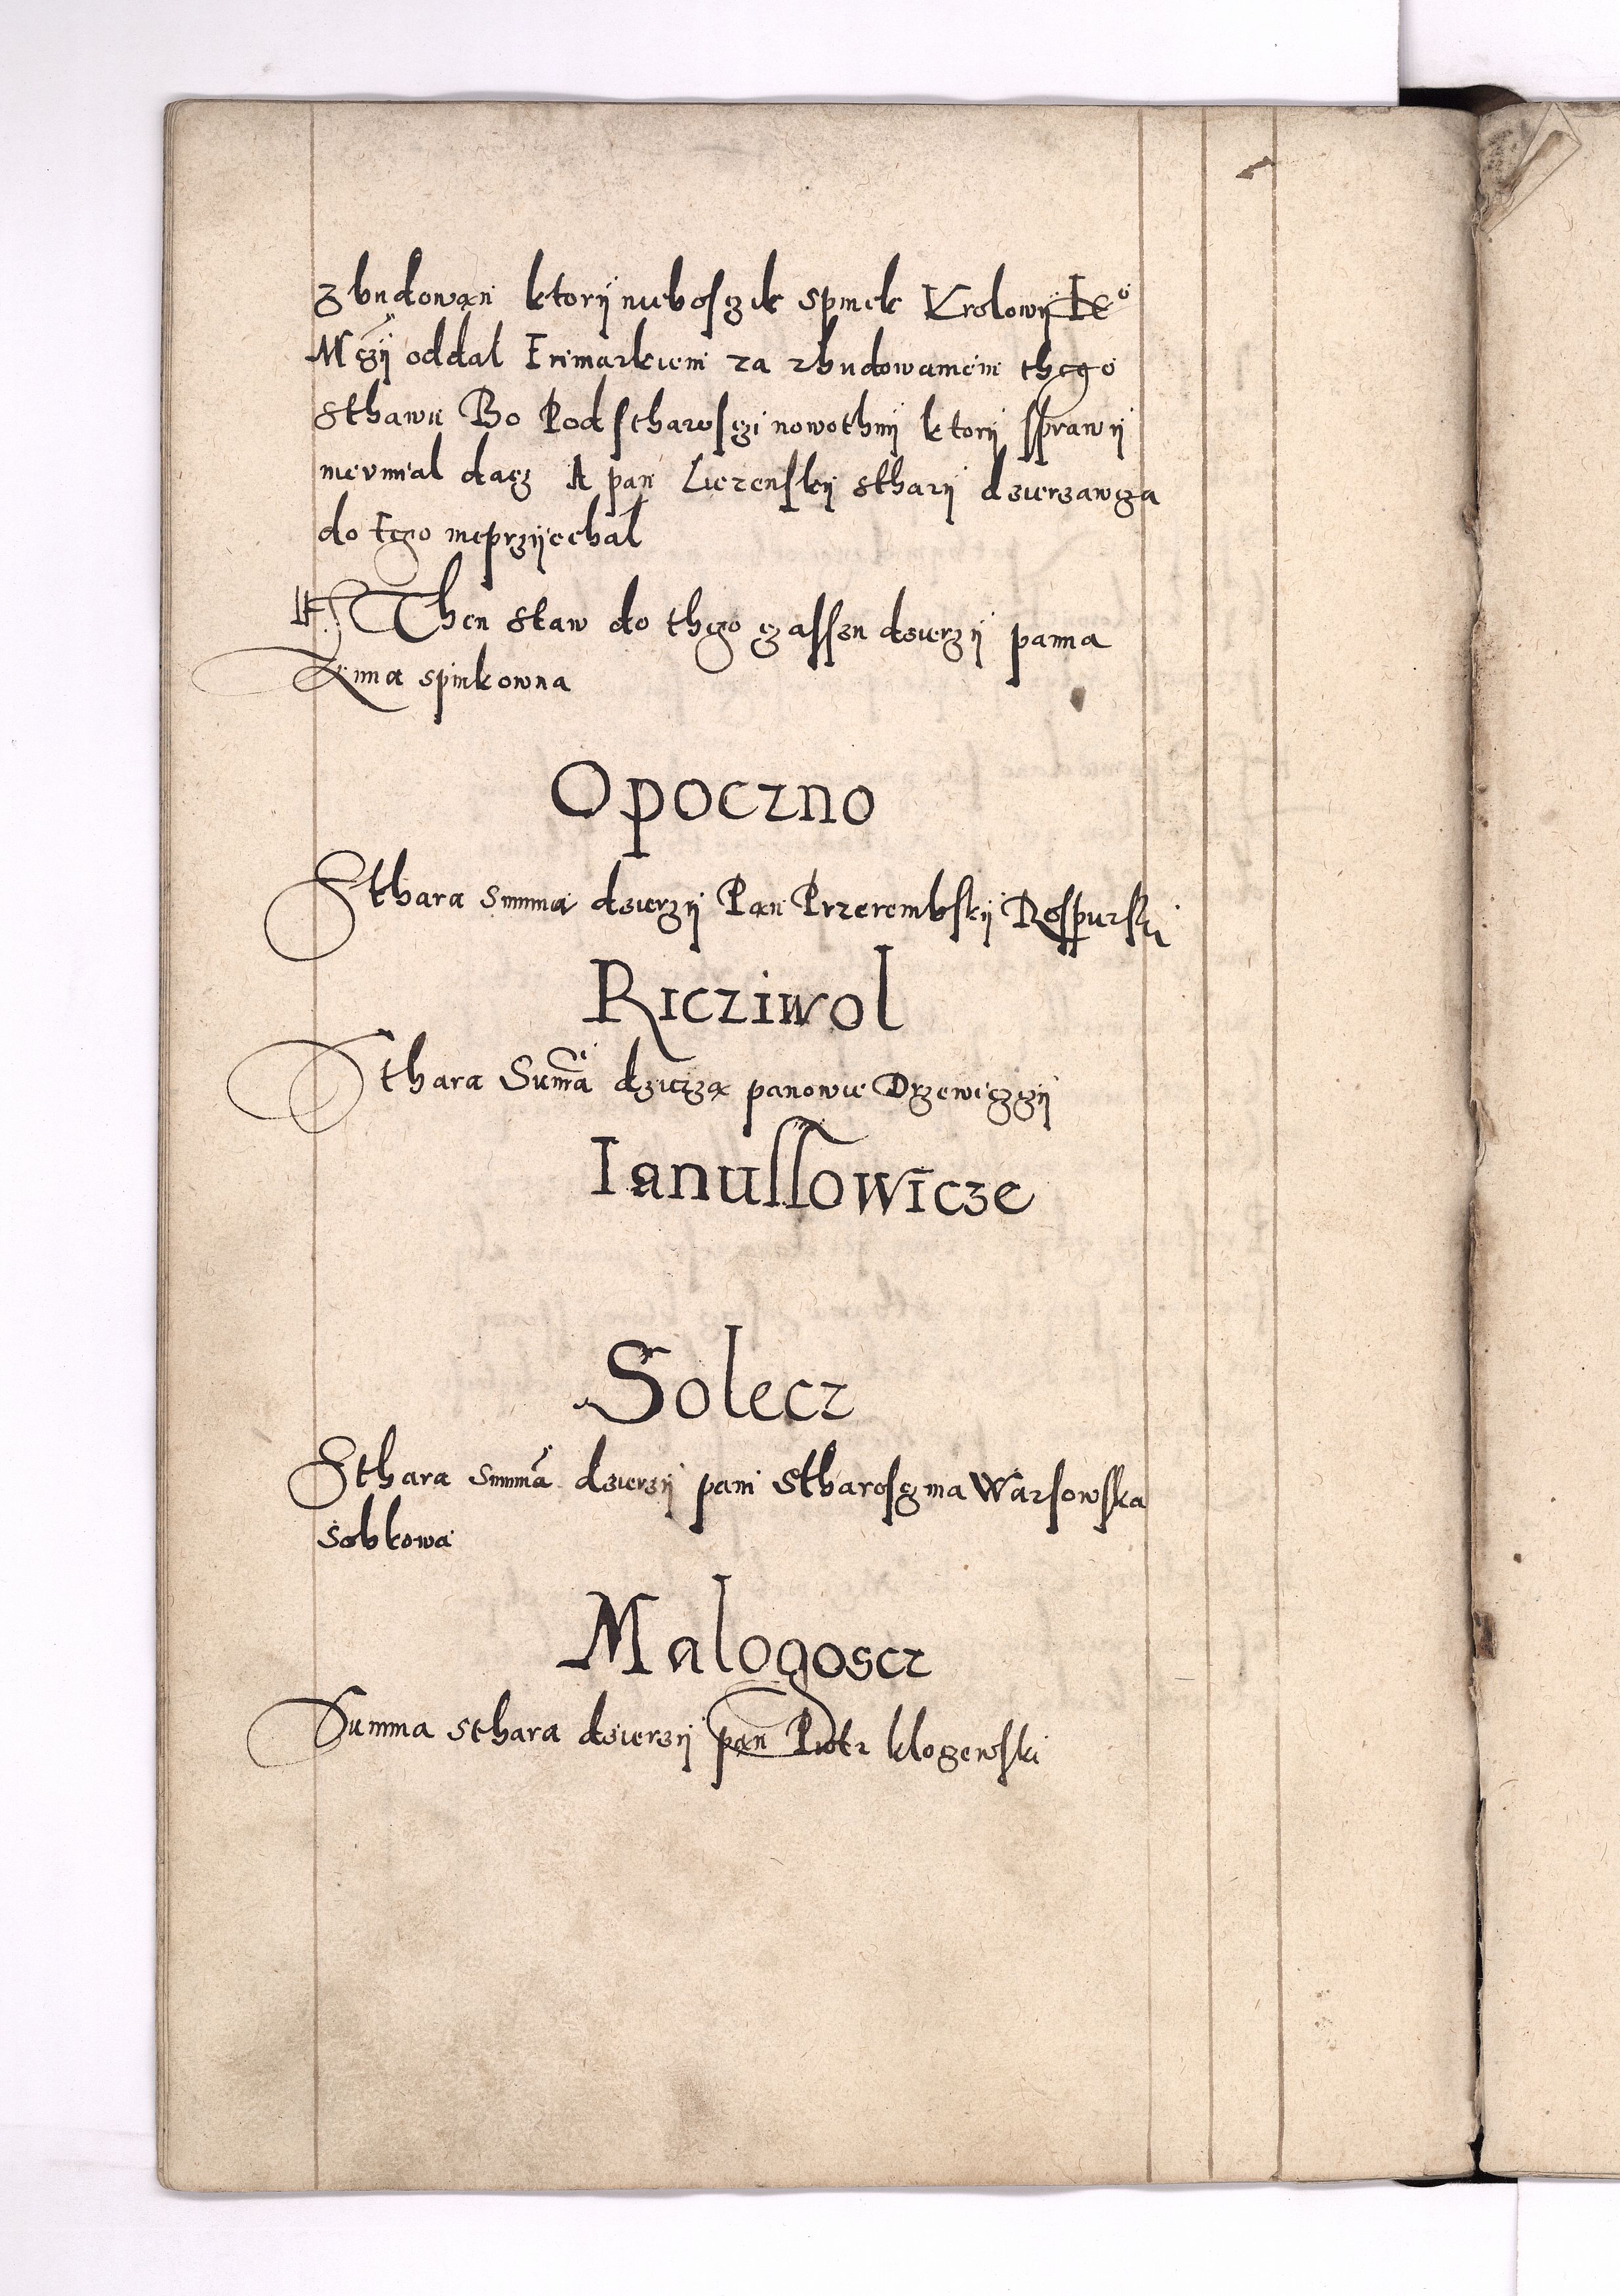 zbudowan ktorÿ nieboszik spinek Krolowÿ Ie°
Mczÿ oddal Frimarkiem za zbudowaniem thego
Sthawu Bo Podstharosczi nowothnÿ ktorÿ sprawÿ
nieumial dacz A pan Liezenskÿ stharÿ dzierzawcza
do tego nieprzÿechal
It. Then staw do thego czasszu dzierzÿ panna
Anna spinkowna
Opoczno
Sthara summa dzierzÿ Pan Przerembskÿ Rospurski
Ricziwol
Sthara Suma dzierza panowie Drzewiczczÿ
Ianussowicze
Solecz
Sthara summa dzierzÿ pani Stharosczina Warsowska
Sobkowa
Malogoscz
Summa sthara dzierzÿ pan Piotr klogewski